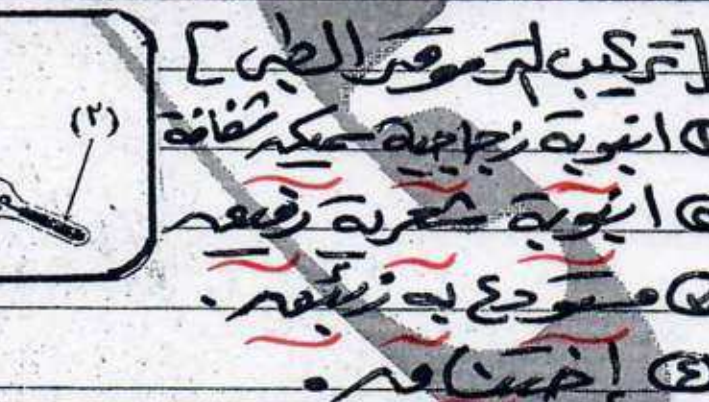 [تركيب الترمومتر الطبى]
① انبوبة زجاجية سميكه شفافة
② انبوبة شعرية رفيعه
③ مستودع به زئبق .
④ إختناق .
(٢)